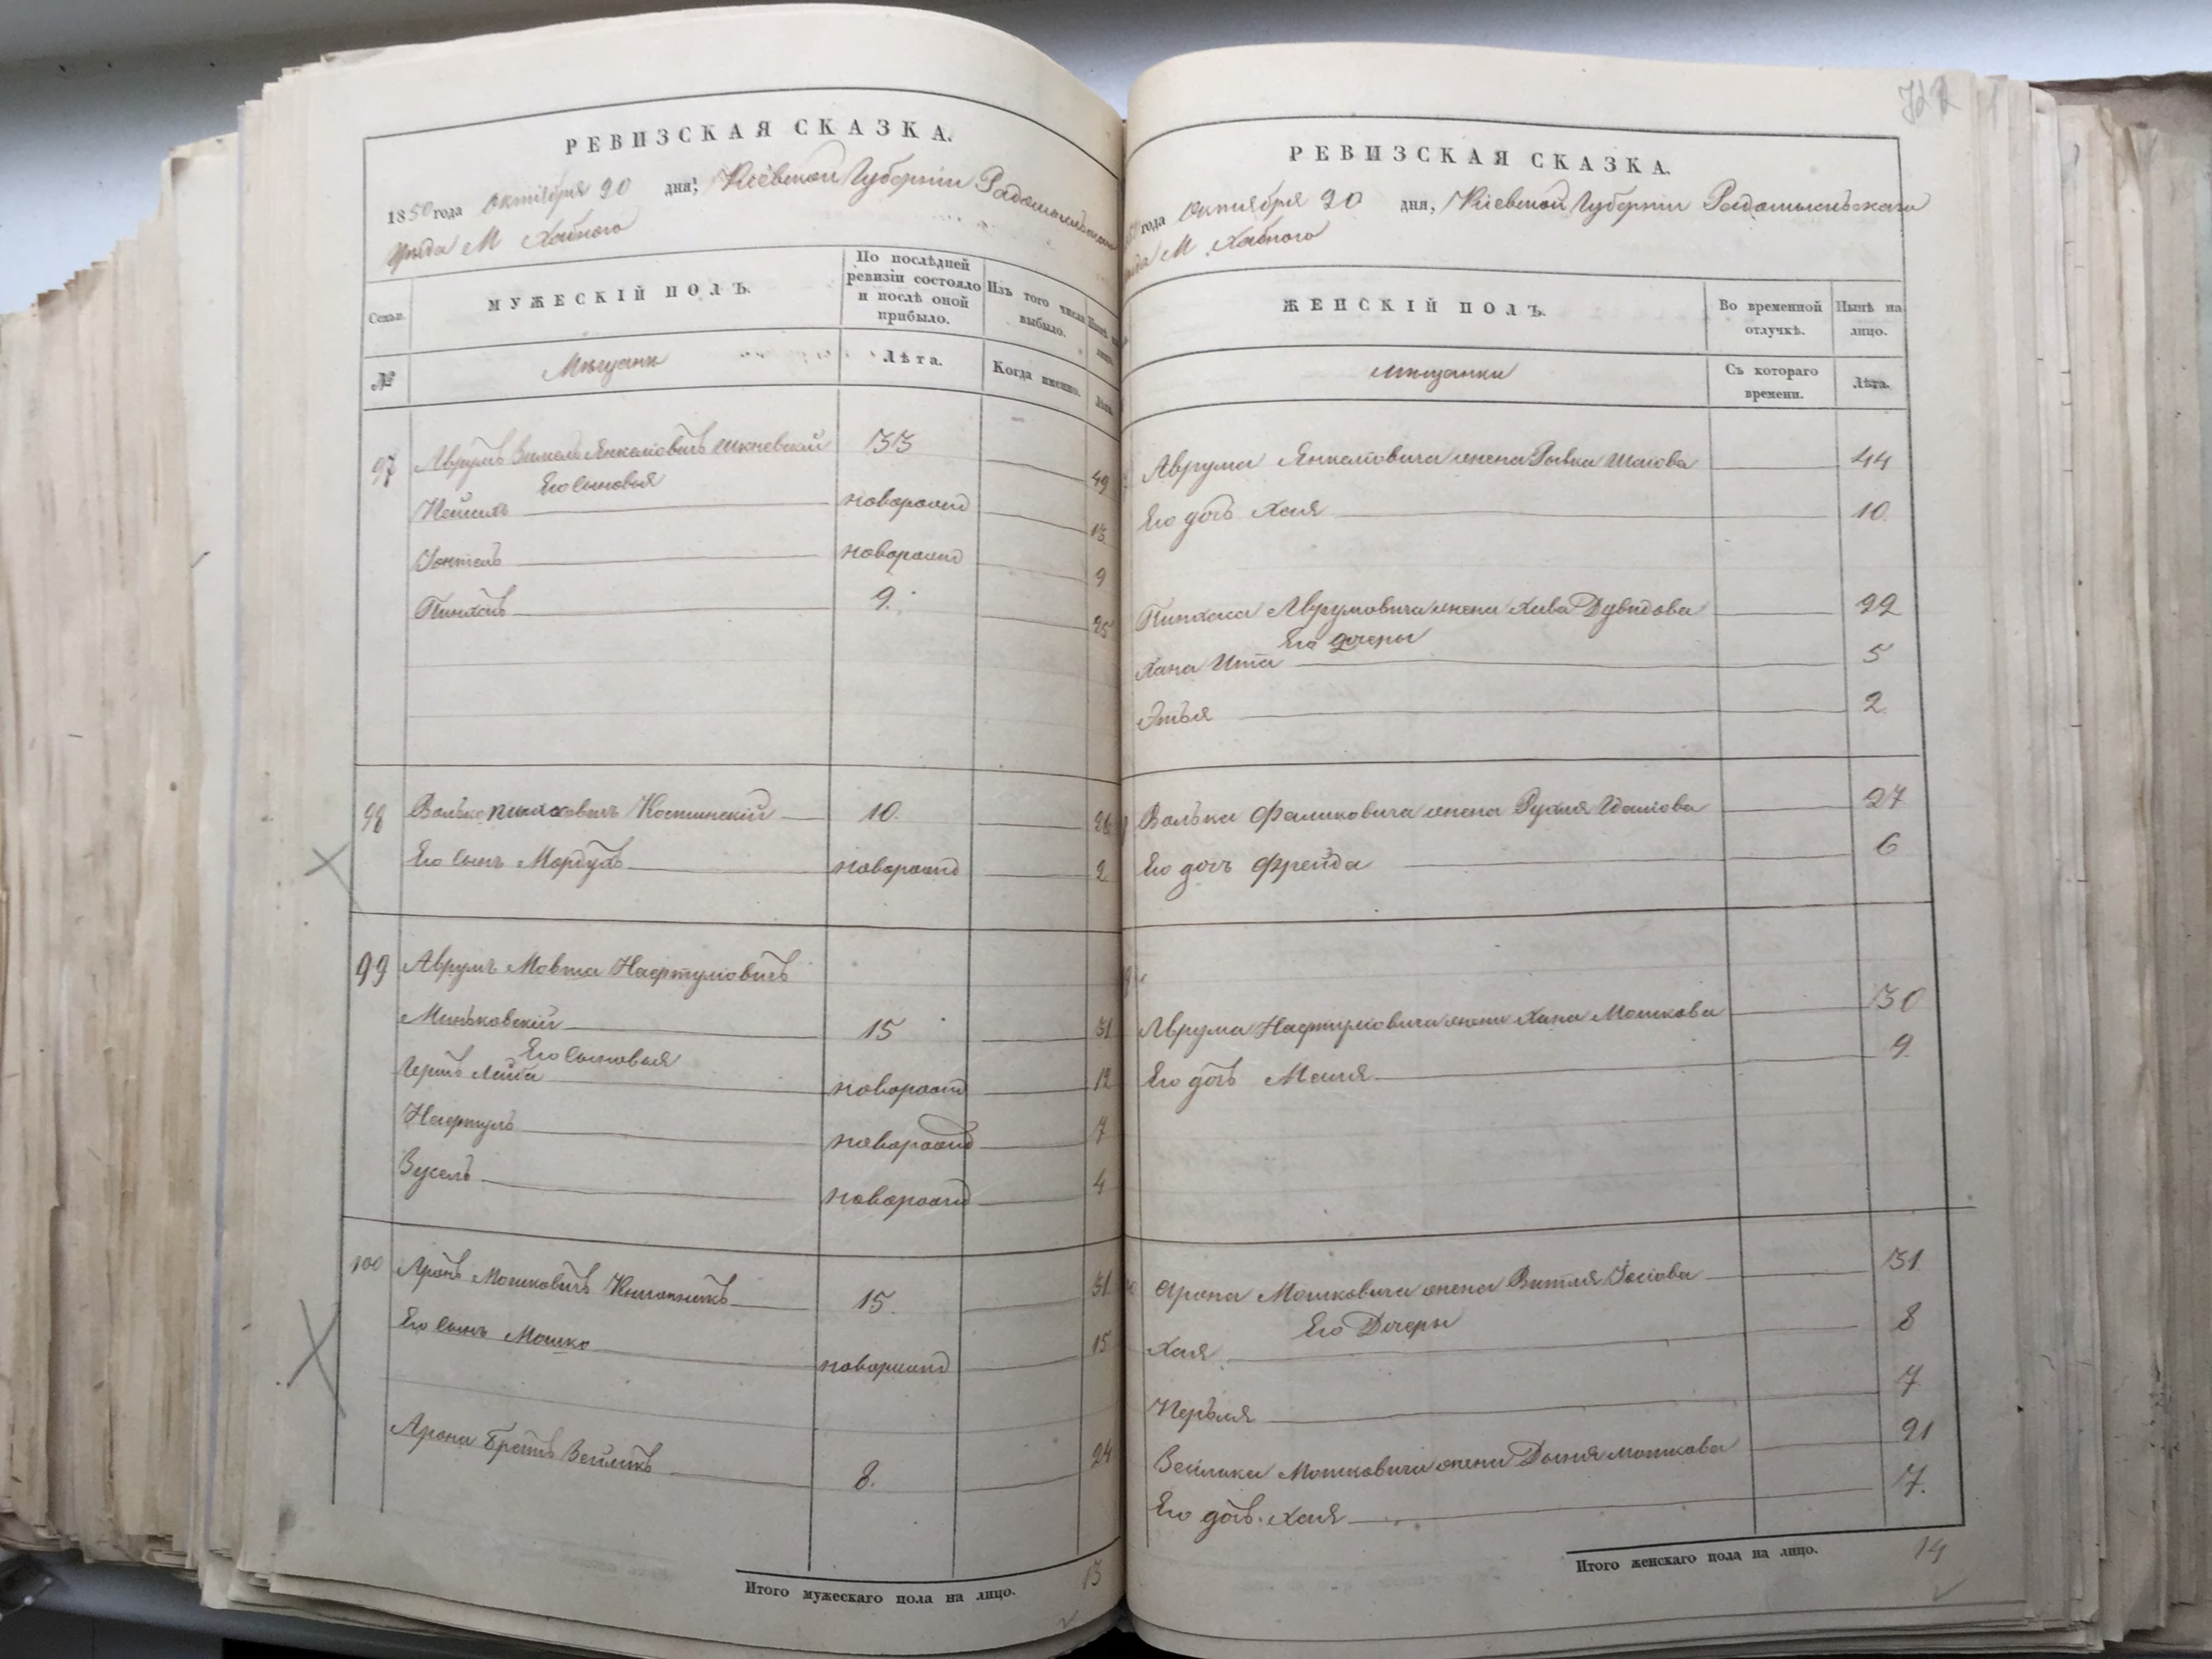 РЕВИЗСКАЯ СКАЗКА.
1850 года Октября 20 дня, Кіевской Губерніи Радомысльскаго
уезда М Хабного
Семьи. МУЖЕСКІЙ ПОЛЪ. По послѣдней ревизіи состояло и послѣ оной прибыло. Изъ того числа выбыло.
№ Мещане Лѣта. Когда именно. Лѣта.
97 Аврумъ Янкеліовичъ 33 49
Его Сыновья
новорожд 13
новорожд 9
Пинхасъ 9. 25
98 Волько Пинхасовичъ 10. 26
Его сынъ Мордухъ новорожд 2
99 Аврумъ Мовша Нафтуліовичъ
Миньковскій 15 31
Его Сыновья
Лейба новорожд 12
Нафтуль новорожд 7
Зусель новорожд 4
100 Аронъ Мошковичъ 15. 31
Его сынъ Мошко новорожд 15
Арона братъ Зейликъ 8. 24
Итого мужескаго пола на лицо. 13
РЕВИЗСКАЯ СКАЗКА.
года Октября 20 дня, Кіевской Губерніи Радомысльскаго
М Хабного
ЖЕНСКІЙ ПОЛЪ. Во временной отлучкѣ. Нынѣ на лицо.
мещанки Съ котораго времени. Лѣта.
Аврума Янкеліовича жена Рывка 44
Его дочь Хая 10.
Пинхаса Аврумовича жена Хива Дувидова 22
Его дочеры
Хана Ита 5
Этья 2
Волька жена Рухля 27
Его дочь Фрейда 6
Аврума Нафтуліовича жена Хана Мошкова 30
Его дочь Маля 9.
Арона Мошковича жена Витля Іосіова 31.
Его Дочеры
Хая 8
Перьля 7
Зейлика Мошковича жена Мошкова 21
Его дочь Хая 7.
Итого женскаго пола на лицо. 14